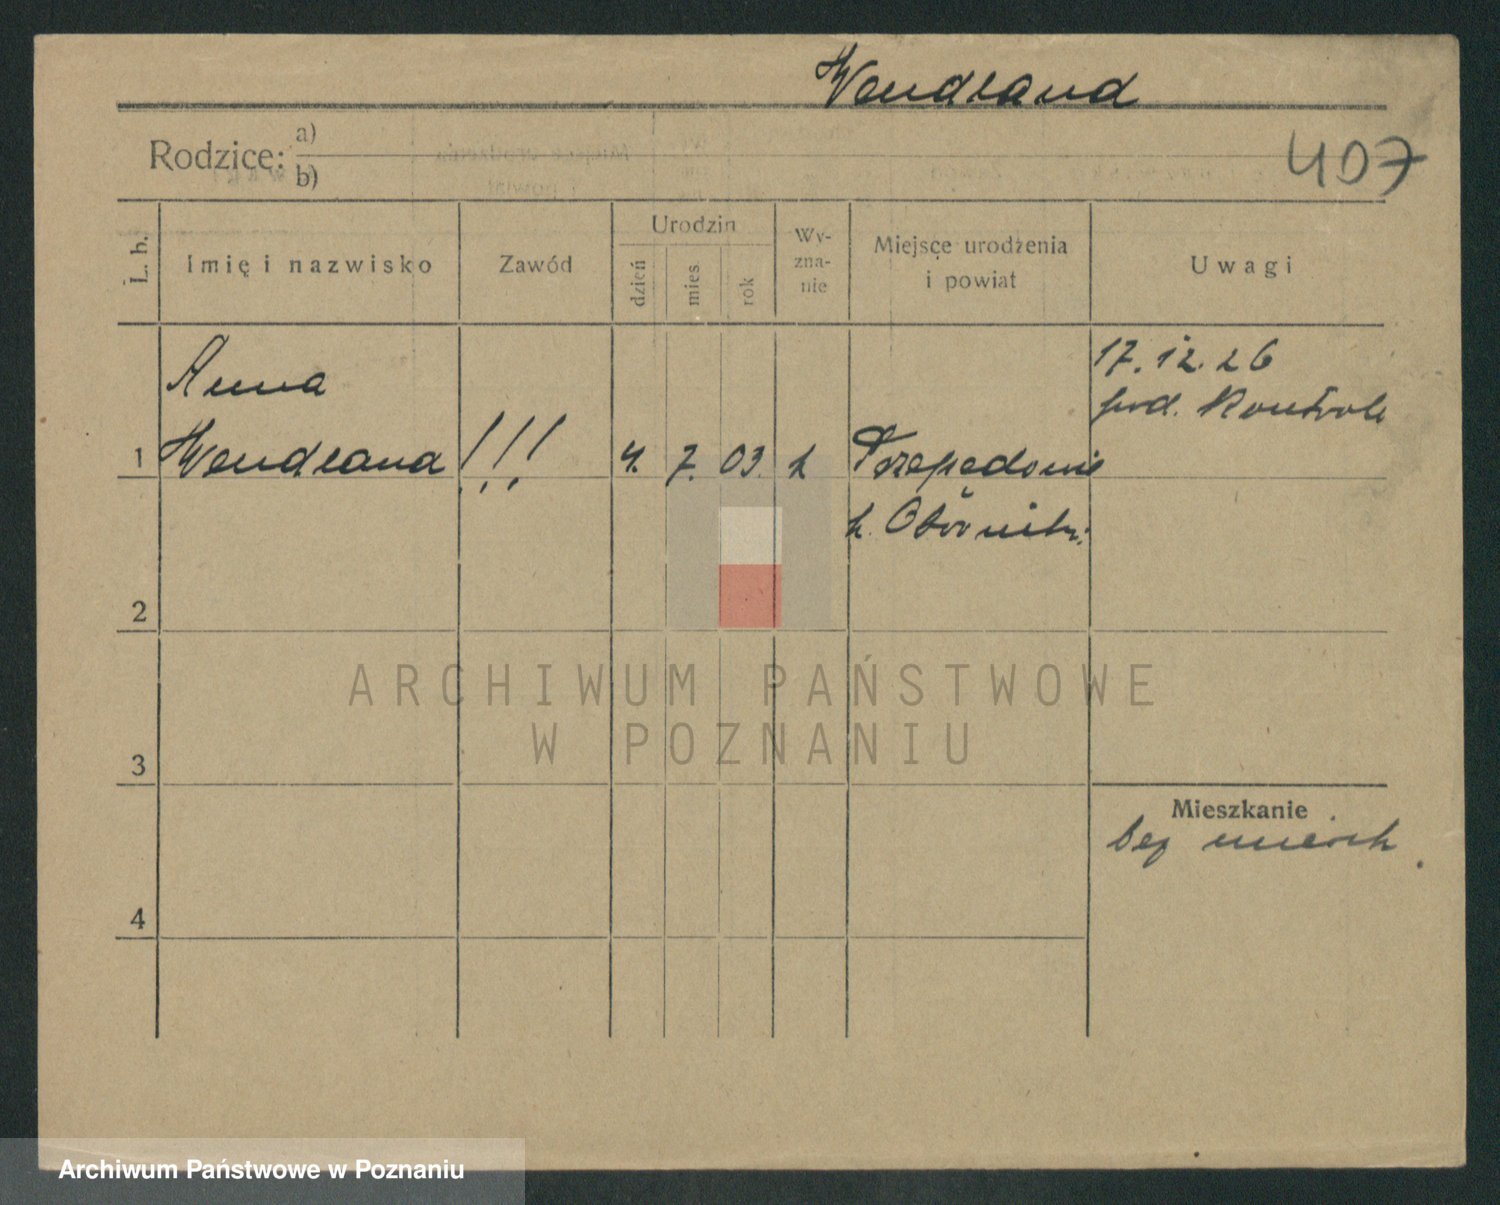 Wendland
407
Rodzice: a)
b)
L. b. Imię i nazwisko Zawód Urodzin dzień mies rok Wy-zna-nie Miejsce urodzenia i powiat Uwagi
17. 12. 26
Anna
pod. Kontrole
1 Wendland !!! 4. 7. 03. k
p. Oborniki
2
ARCHIWUM PAŃSTWOWE
W POZNANIU
3
Mieszkanie
bez
4
Archiwum Państwowe w Poznaniu